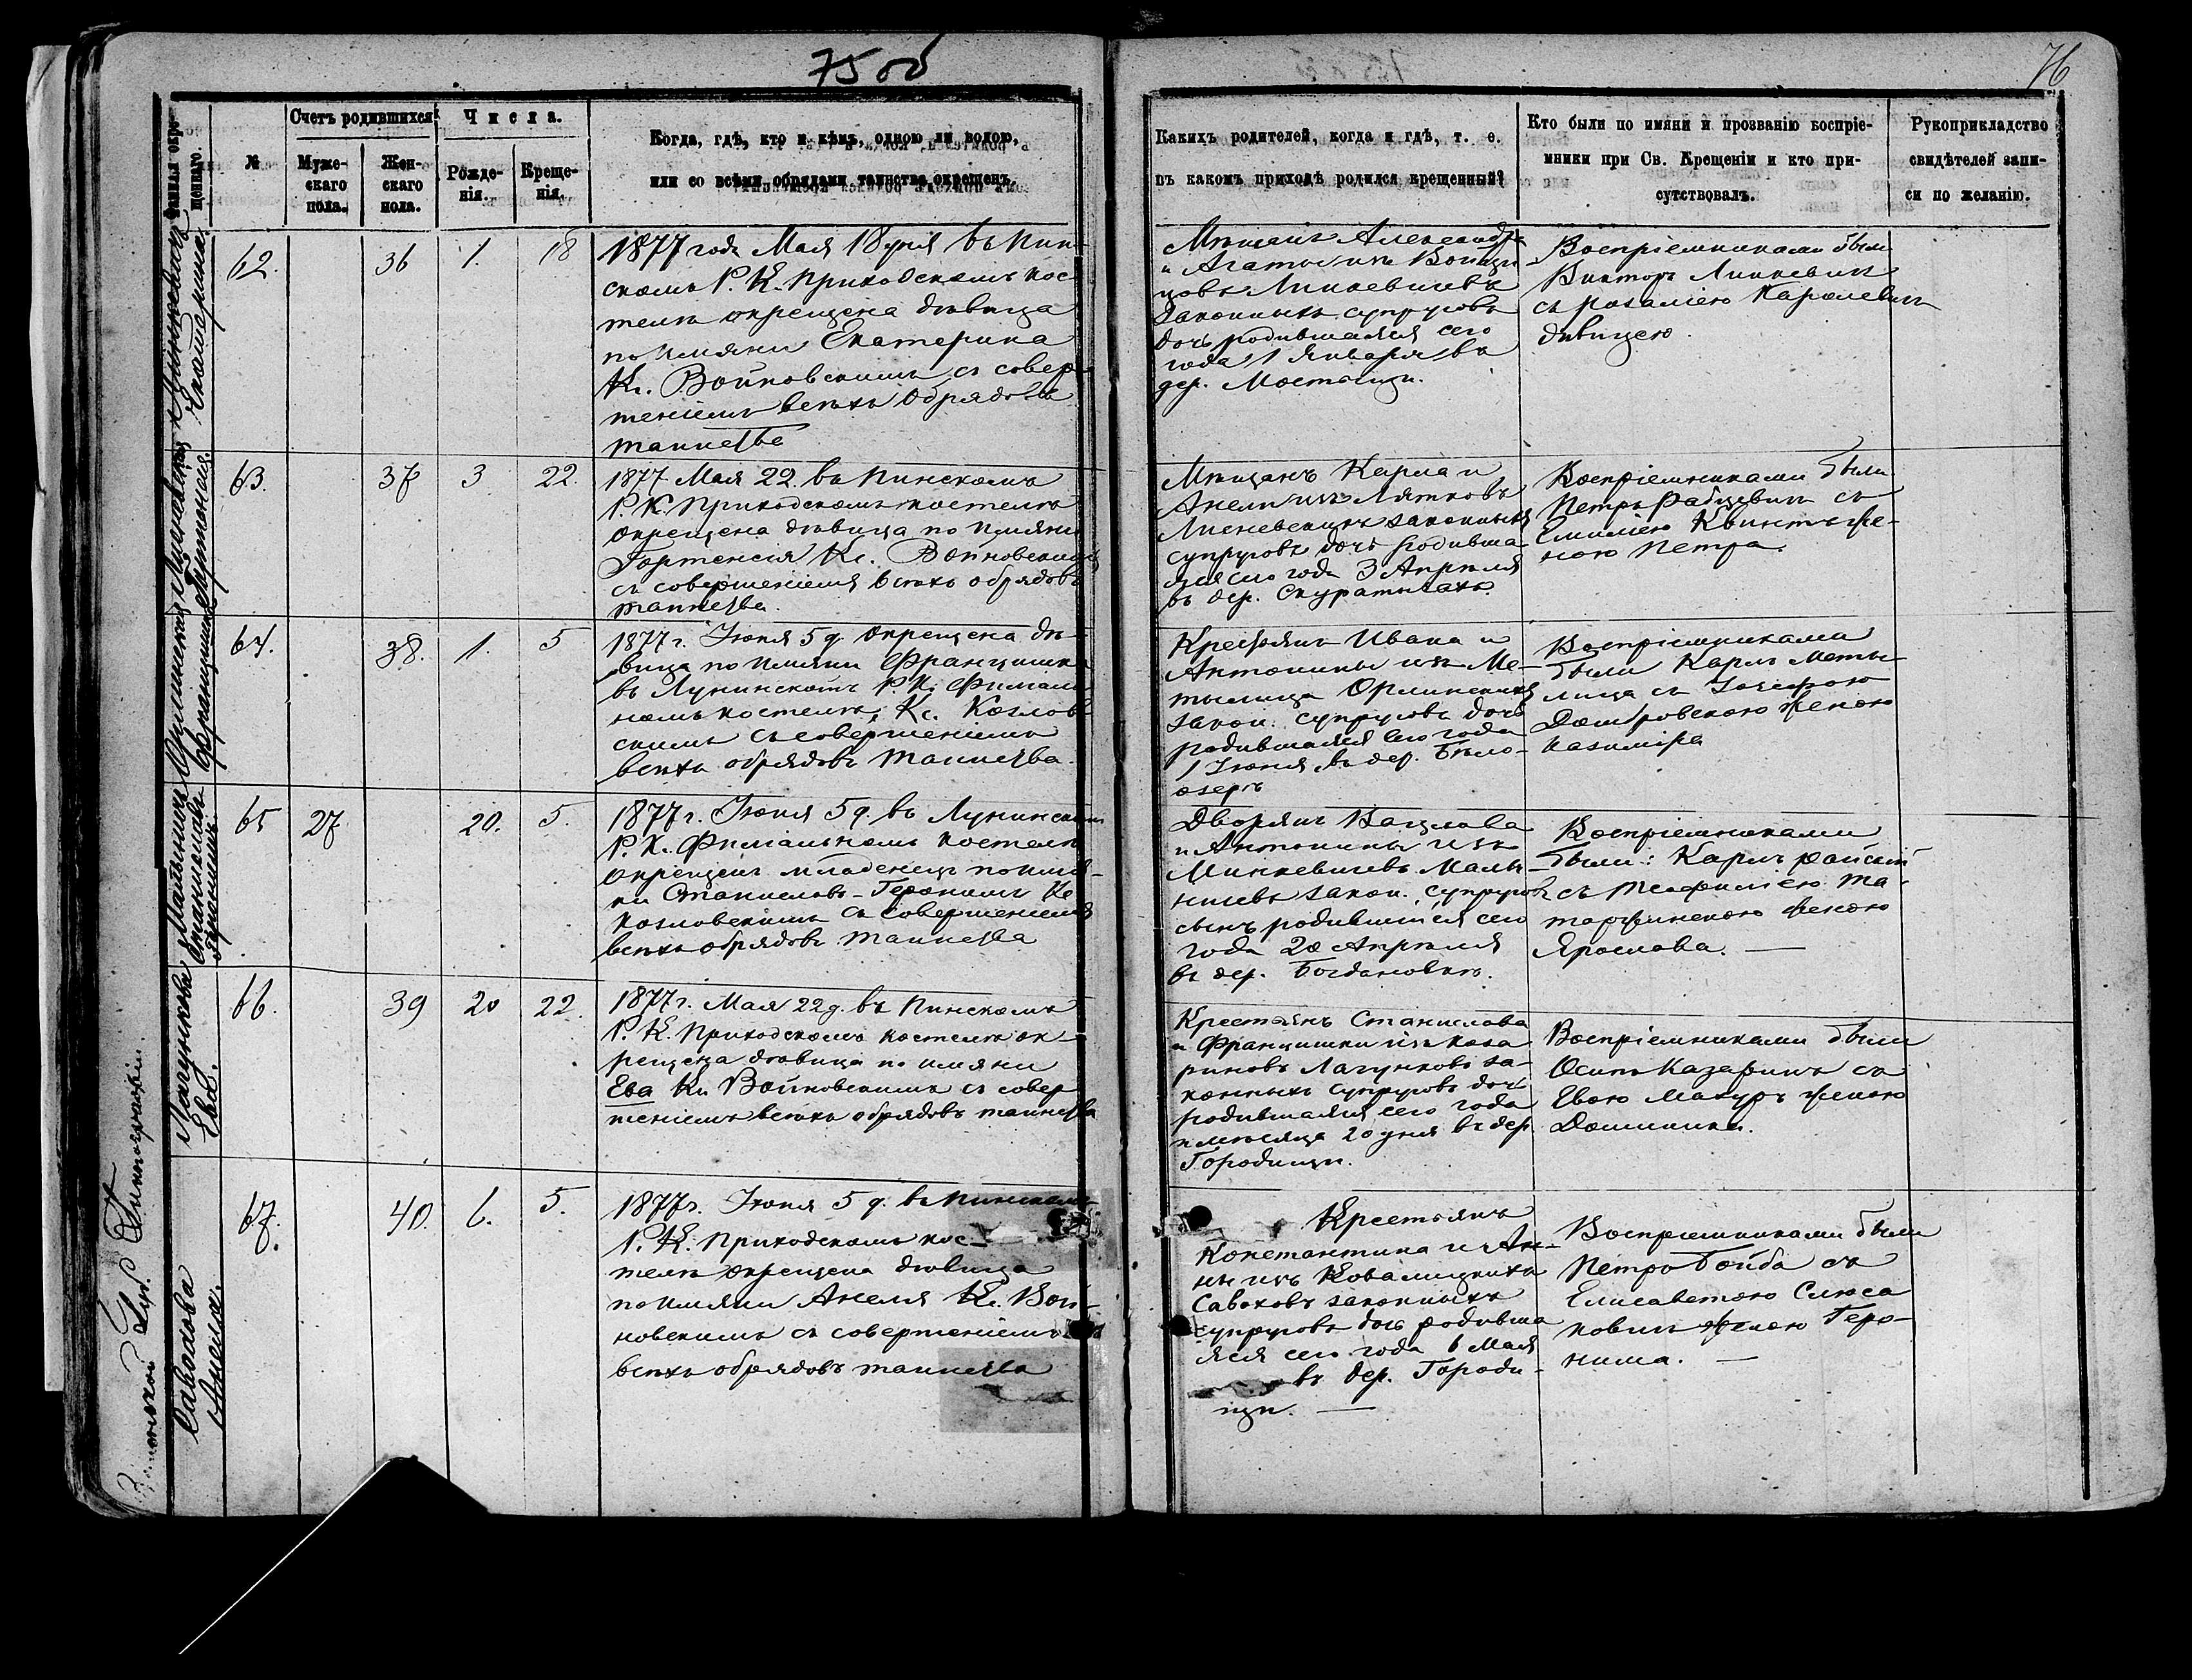 75 об
76
Фамилія окре-
щеннаго.
№
Счетъ родившихся
Муже-
скаго
пола.
Жен-
скаго
пола.
Числа.
Рожде-
нія.
Креще-
нія.
Когда, гдѣ, кто и кѣмъ, одною ли водою,
или со всѣми обрядами таинства окрещенъ.
Какихъ родителей, когда и гдѣ, т. е.
въ какомъ приходѣ родился крещенный?
Кто были по имяни и прозванію воспріе-
мники при Св. Крещеніи и кто при-
сутствовалъ.
Рукоприкладство
свидѣтелей запи-
си по желанію.
Екатерина
62.
36
1.
18
1877 года Мая 18 дня въ Пин-
скомъ Р. К. Приходскомъ кос-
телѣ окрещена дѣвица
по имяни Екатерина
Кс. Войновскимъ съ совер-
шеніемъ всѣхъ обрядовъ
таинства
Мѣщанъ Александра
и Агаты изъ
Линкевичевъ
законныхъ супруговъ
дочь родившаяся сего
года 1 Января въ
дер. Мостыщи.
Воспріемниками были
Викторъ Линкевичъ
съ Розаліею Каролевичъ
дѣвицею.
Гортензія
63.
37
3
22.
1877 Мая 22 въ Пинскомъ
Р. К. Приходскомъ костелѣ
окрещена дѣвица по имяни
Гортенсія Кс. Войновскимъ
съ совершеніемъ всѣхъ обрядовъ
таинства.
Мѣщанъ Карла и
Анели изъ
законныхъ
супруговъ дочь родивша-
яся сего года 3 Апрѣля
въ дер.
Воспріемниками были
Петръ Рабцевичъ съ
Емиліею Квинто же-
ною Петра.
Орлинская
Францишка
64.
38.
1.
5
1877 г. Іюня 5 д. окрещена дѣ-
вица по имяни Францишка
въ Лунинскомъ Р. К. Филіаль-
номъ костелѣ, Кс. Козлов-
скимъ съ совершеніемъ
всѣхъ обрядовъ таинства.
Крестьянъ Ивана и
Антонины изъ Ме-
тылица Орлинскихъ
закон. супруговъ дочь
родившаяся сего года
1 Іюня въ дер. Бѣло-
озерѣ
Воспріемниками
были Карлъ Меты-
лица съ Іозефою
Домбровскою женою
Казиміра
Малышко
Станиславъ
Геронимъ
65
27
20.
5.
1877 г. Іюня 5 д. въ Лунинскомъ
Р. К. Филіальномъ костелѣ
окрещенъ младенецъ по имя-
ни Станиславъ-Геронимъ Кс.
Козловскимъ съ совершеніемъ
всѣхъ обрядовъ таинства
Дворянъ Вацлава
и Антонины изъ
Минкевичевъ Малы-
закон. супруговъ
сынъ родившійся сего
года 20 Апрѣля
въ дер. Богдановкѣ.
Воспріемниками
были: Карлъ Райскій
съ Теофиліею Та-
женою
Ярослава. —
Лагункова
Ева.
66.
39
20
22.
1877 г. Мая 22 д. въ Пинскомъ
Р. К. Приходскомъ костелѣ ок-
рещена дѣвица по имяни
Ева Кс. Войновскимъ съ совер-
шеніемъ всѣхъ обрядовъ таинства
Крестьянъ Станислава
и Францишки изъ Каза-
риновъ Лагунковъ за-
конныхъ супруговъ дочь
родившаяся сего года
и мѣсяца 20 дня въ дер.
Городищи.
Воспріемниками были
Осипъ Казаринъ съ
Евою Мазуръ женою
Доминика.
Саводова
Анеля.
67.
40.
6.
5.
1877 г. Іюня 5 д. въ Пинскомъ
Р. К. Приходскомъ кос-
телѣ окрещена дѣвица
по имяни Анеля Кс. Вой-
новскимъ съ совершеніемъ
всѣхъ обрядовъ таинства
Крестьянъ
Константина и Ан-
ны изъ
законныхъ
супруговъ дочь родивша-
яся сего года 6 Мая
въ дер. Городи-
щи. —
Воспріемниками были
Петръ Бойба съ
Елисаветою Слюса-
женою Геро-
нима. —